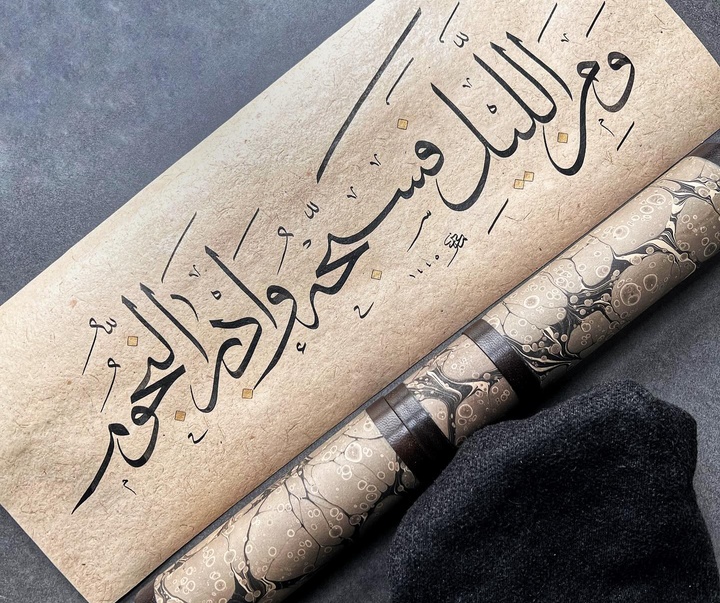 ومن الليل فسبحه وإدبار النجوم
١٤٤٥